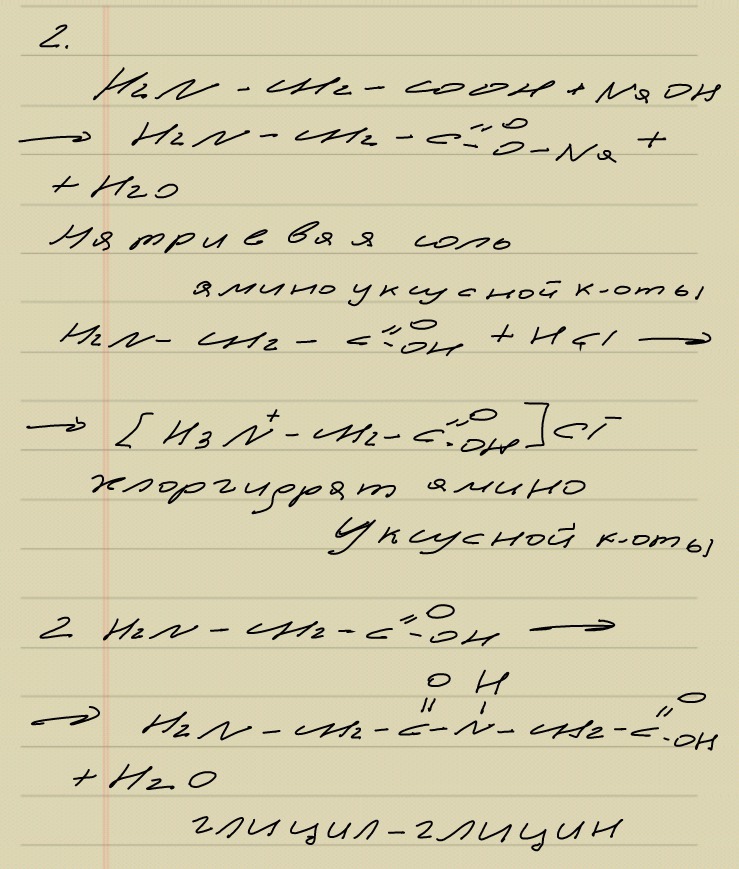 2.
H2N - CH2 - COOH + NaOH
→ H2N - CH2 - C=O -O-Na +
+ H2O
натриевая соль
аминоуксусной к-оты
H2N - CH2 - C=O -OH + HCl →
→ [H3N+ - CH2 - C=O -OH]Cl-
хлоргидрат амино
уксусной к-оты
2 H2N - CH2 - C=O -OH →
O H
→ H2N - CH2 - C - N - CH2 - C=O -OH
+ H2O
глицил-глицин